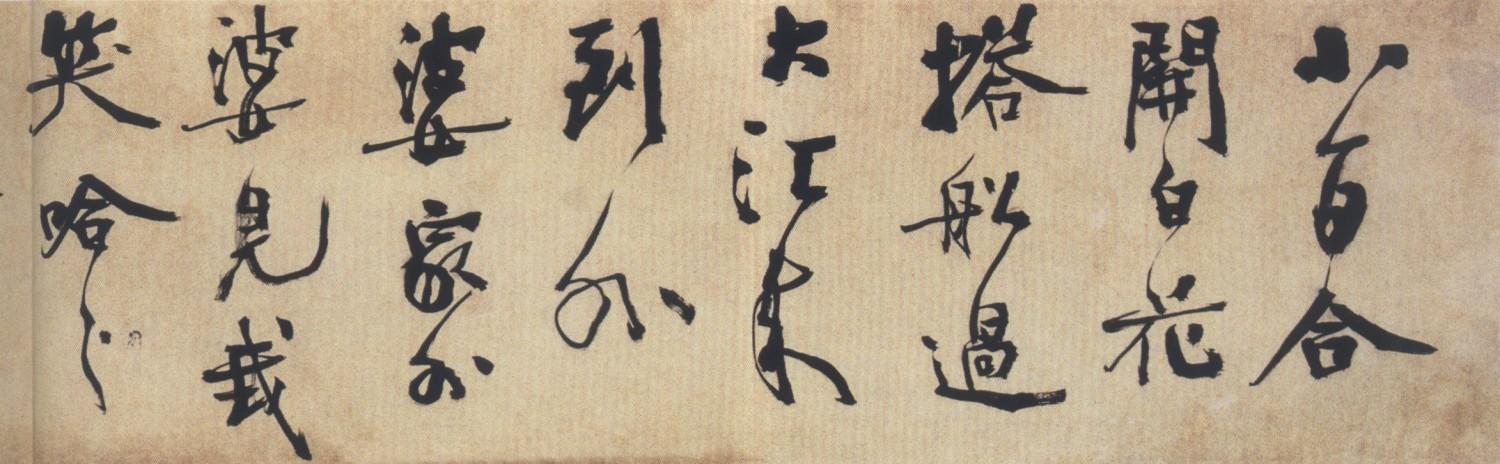 小百合
開白花
搭船過
大江來
到外
婆家外
婆見我
笑哈〻